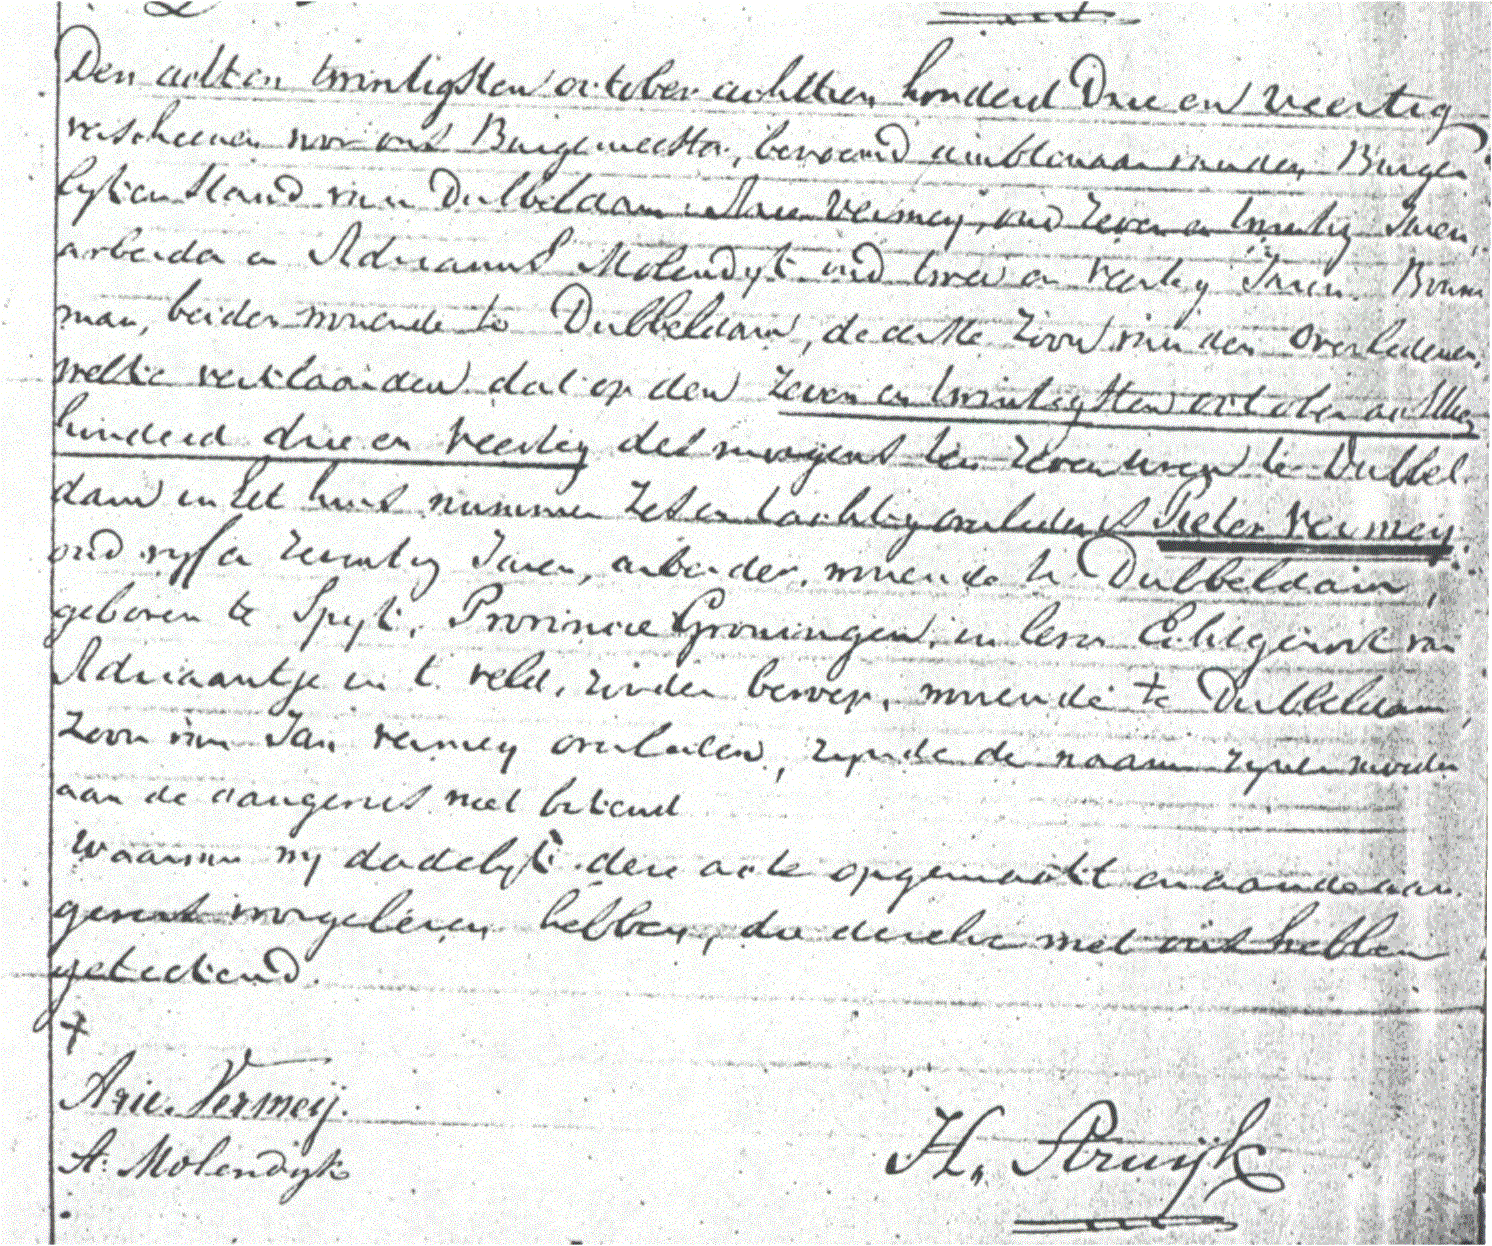 Den acht en twintigsten october achttien honderd Drie en veertig
verscheenen voor ons Burgemeester, beroemd ambtenaar van den Burger
lyken Stand van Dubbeldam Arie Vermey, oud zeven en twintig Jaren,
arbeider en Adrianus Molendyk oud twee en veertig Jaren Bouw
man, beiden wonende te Dubbeldam, de eerste zoon van den overledenen,
welke verklaarden dat op den zeven en twintigsten october achttien
honderd drie en veertig des morgens ten zeven uren te Dubbel
dam in het huis nummer zes en tachtig overleden is Pieter Vermey,
oud vyf en zeventig Jaren, arbeider, wonende te Dubbeldam,
geboren te Spyk, Provincie Groningen, in leven Echtgenoot van
Adriaantje in t veld, zonder beroep, wonende te Dubbeldam,
Zoon van Jan Vermey overleden, zynde de naam zyner moeder
aan de aangevers niet bekend
Waarvan wy dadelyk deze acte opgemaakt en aan de aan
gevers voorgelezen hebben, die dezelve met ons hebben
geteekend.
Arie Vermeij.
A. Molendijk
H. Struijk